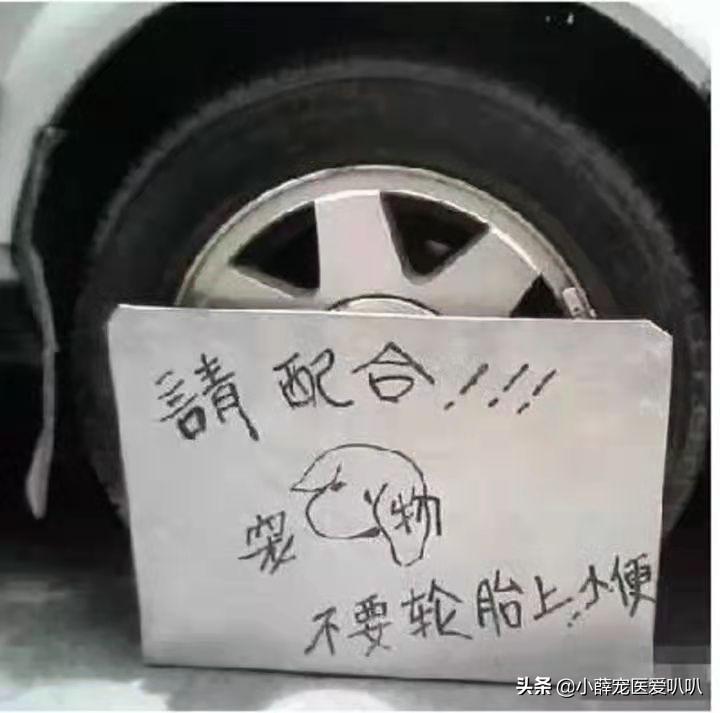 請配合!!!
宠物
不要轮胎上小便
头条 @小薛宠医爱叭叭